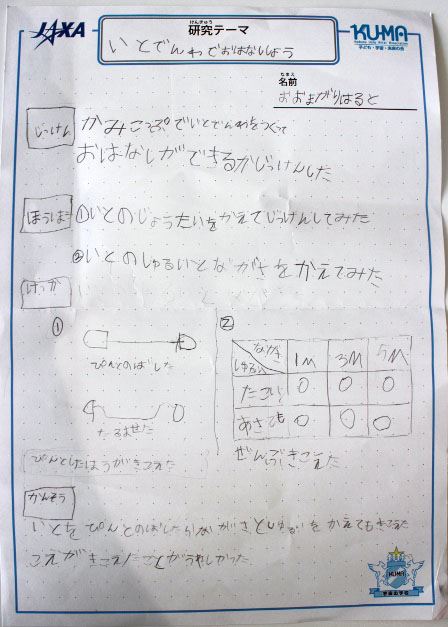 JAXA
けんきゅう
研究テーマ
いとでんわでおはなししよう
KUMA
子ども・宇宙・未来の会
なまえ
名前
おおまがりはると
じっけん
かみこっぷでいとでんわをつくって
おはなしができるかじっけんした
ほうほう
①いとのじょうたいをかえてじっけんしてみた
②いとのしゅるいとながさをかえてみた
けっか
①
ぴんとのばした
たるませた
ぴんとしたほうがきこえた
②
ながさ 1M 3M 5M
しゅるい
たこいと 0 0 0
あさひも 0 0 0
ぜんぶきこえた
かんそう
いとをぴんとのばしたらながさとしゅるいをかえてもきこえた
こえがきこえたことがうれしかった
KUMA
宇宙の学校